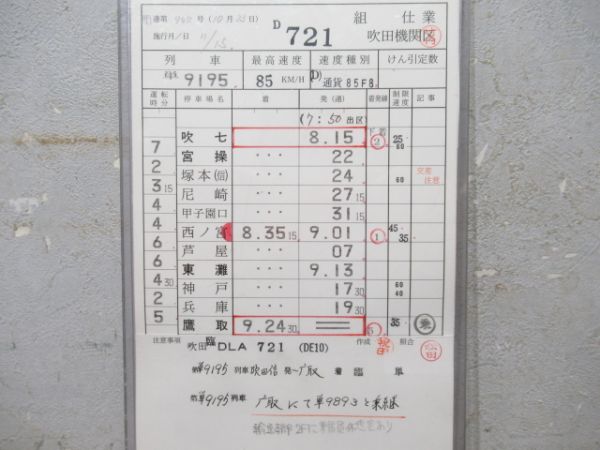 号(10月25日) D 721 組 仕業
施行月/日 11/15. 吹田機関区
列車 最高速度 速度種別 けん引定数
9195. 85 KM/H (D) 通貨85F8.
運転時分 停車場名 着 発(通) 着発線 制限速度 記事
(7:50出区)
吹七 8.15 ② 25 60
7 宮操 ... 22
2 塚本(信) ... 24 60 交差注意
3 15 尼崎 ... 27 15
4 甲子園口 ... 31 15
4 西ノ宮 8.35 15 9.01 ① 45 35
6 芦屋 ... 07
6 東灘 9.13
4 30 神戸 ... 17 30 60 40
2 兵庫 ... 19 30
5 鷹取 9.24 30 35
注意事項 吹田 臨 DLA 721 (DE10) 作成 照合
9195 列車 吹田信 発〜广取 着 臨 単
9195 列車 广取 にて単9893と乗継